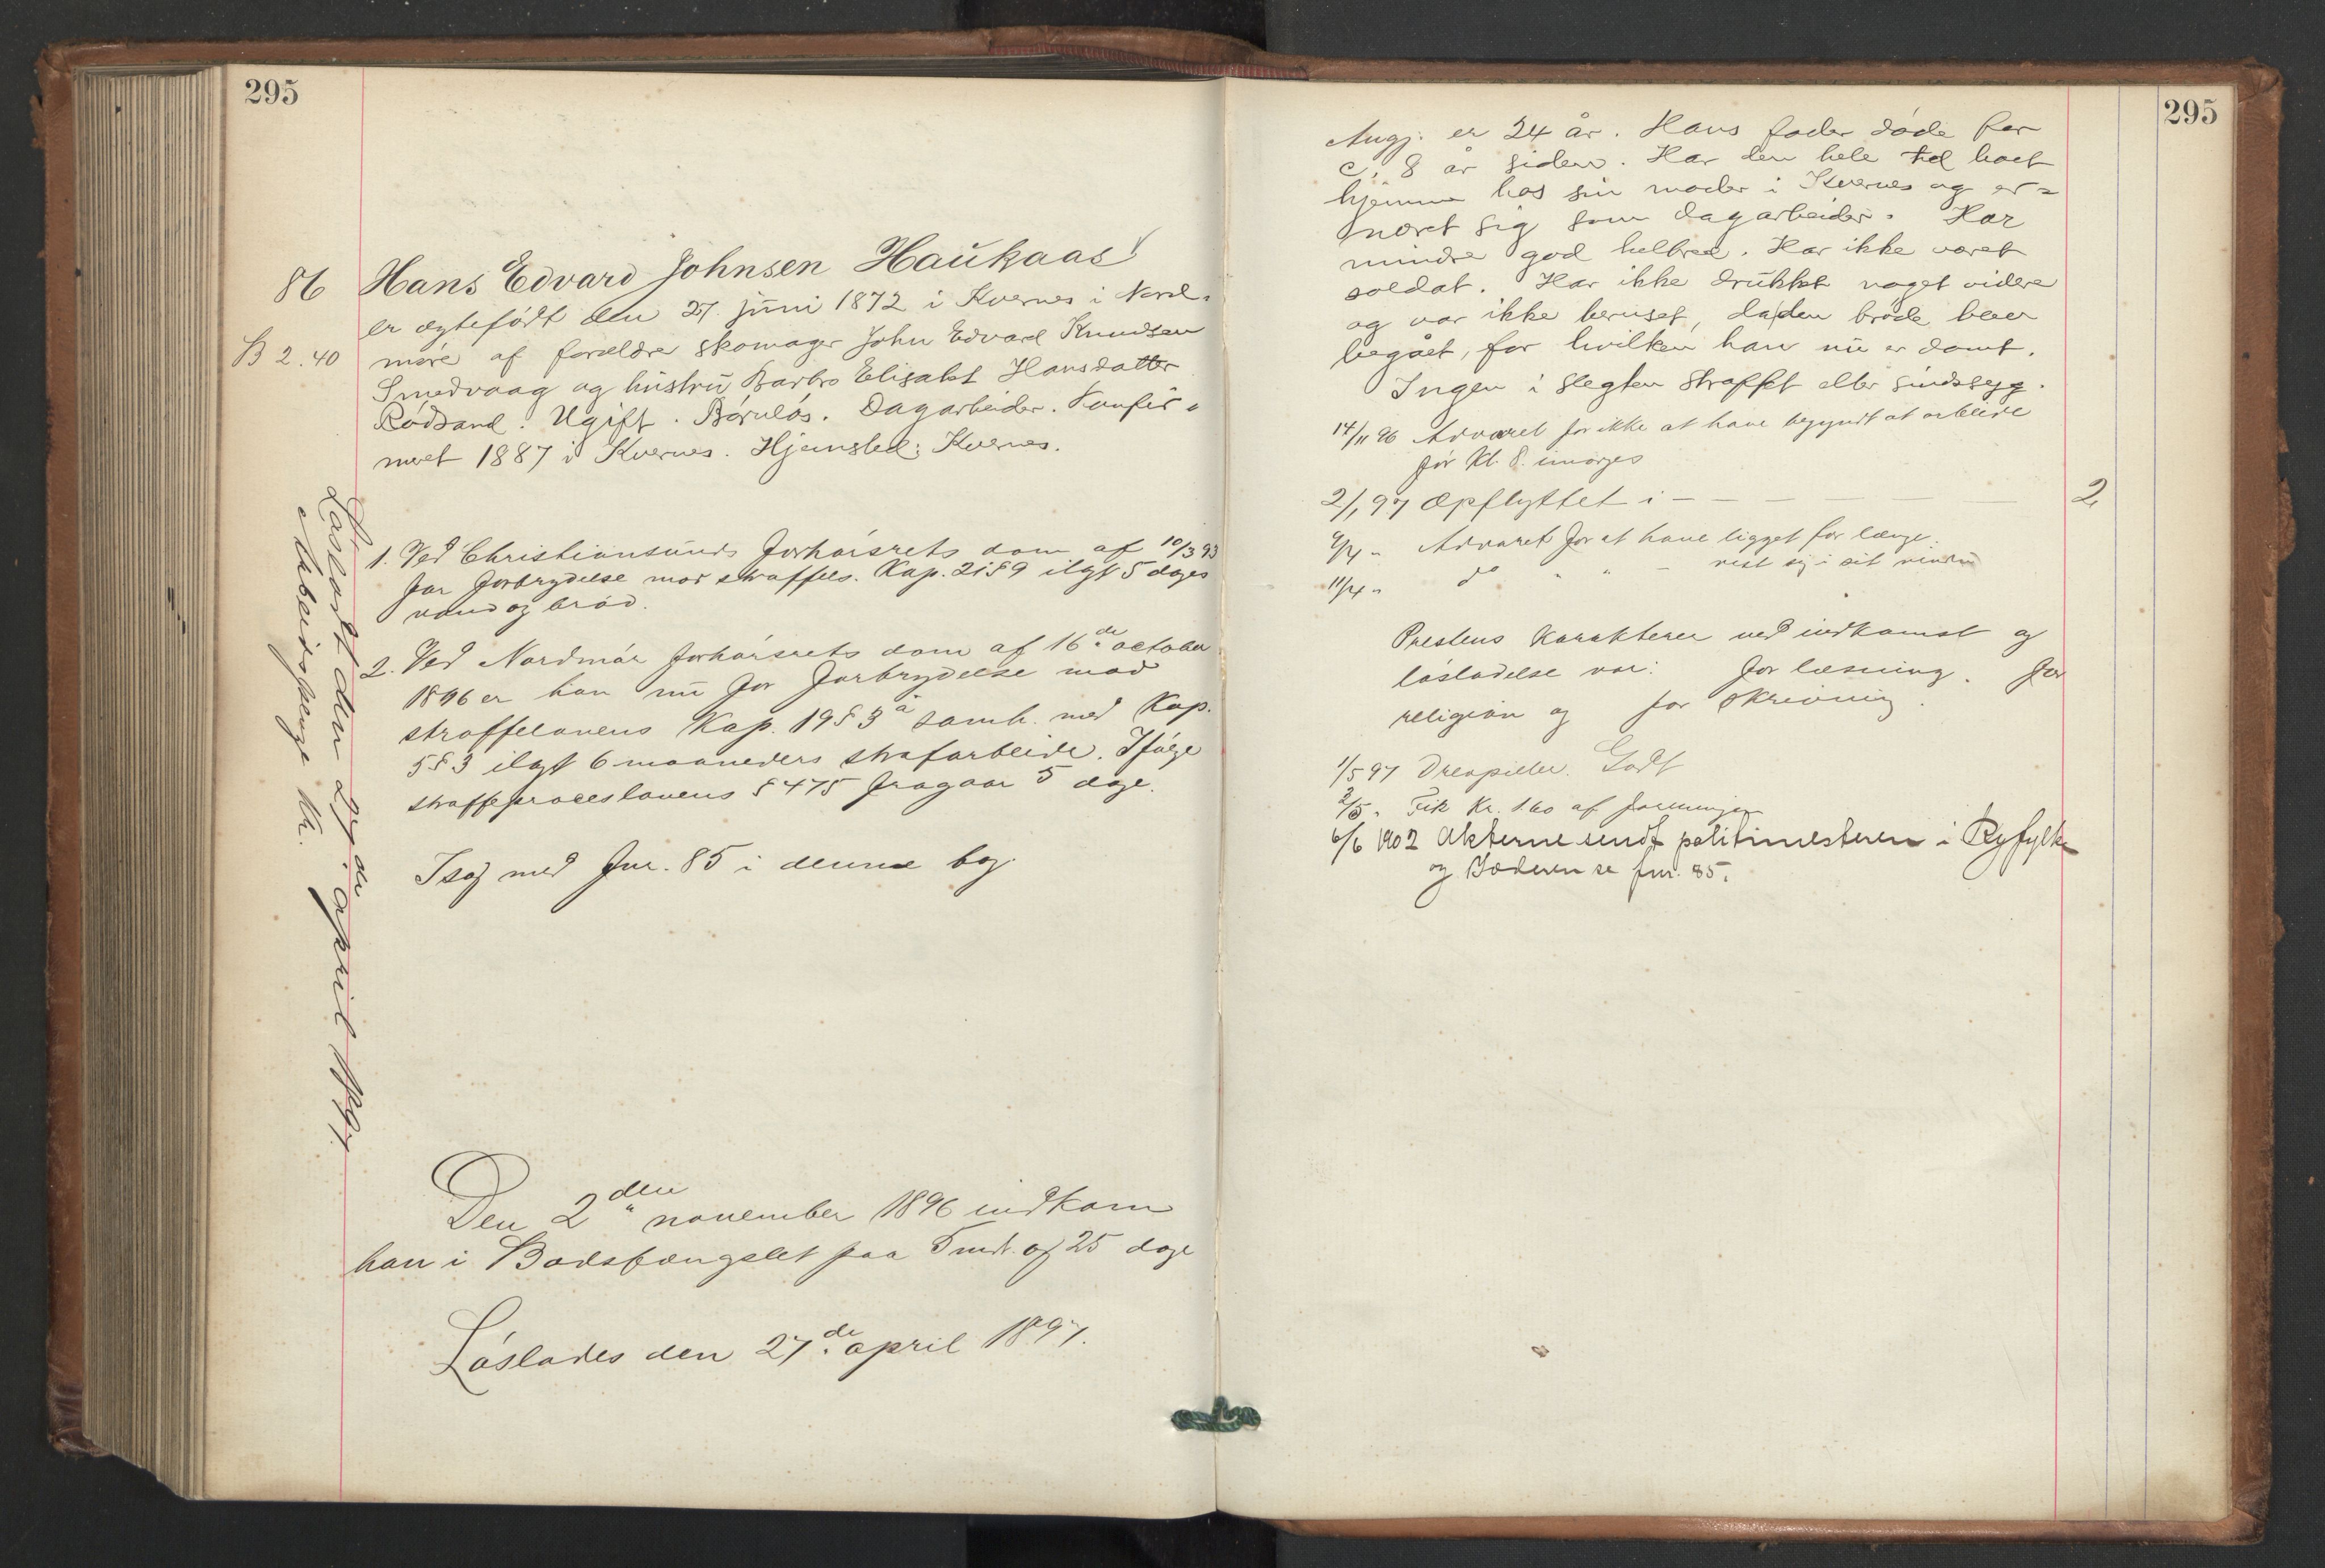 295
86 Hans Edvard Johnsen Haukaas
er ægtefödt den 27. juni 1872 i Kvernes i Nord-
B 2.40 möre af forældre skomager John Edvard Knudsen
Smedvaag og hustru Barbro Elisabet Hansdatter
Rödsand. Ugift. Barnlös. Dagarbeider. Konfir-
meret 1887 i Kvernes. Hjemsted: Kvernes.
1. Ved Christiansunds Forhörsrets dom af 10/3 93
for Forbrydelse mod straffels. Kap. 21 § 9 ilagt 5 dages
vand og bröd.
2. Ved Nordmör Forhörsrets dom af 16de october
1896 er han nu for Forbrydelse mod
straffelovens Kap. 19 § 3 a samh. med Kap.
5 § 3 ilagt 6 maaneders strafarbeide. Ifölge
straffeproceslovens § 475 fragaar 5 dage.
I sag med Fnr. 85 i denne bog.
Löslodt den 27de april 1897.
Arbeidspenge Kr.
Den 2den november 1896 indkom
han i Bodsfængslet paa 5 mdr. og 25 dage
Löslades den 27de april 1897.
295
Angj. er 24 år. Hans fader döde for
c. 8 år siden. Har den hele tid boet
hjemme hos sin moder i Kvernes og er-
næret sig som dagarbeider. Har
mindre god helbred. Har ikke været
soldat. Har ikke drukket noget videre
og var ikke beruset, da den bröde blev
begået, for hvilken han nu er dömt.
Ingen i slegten straffet eller sindssyg.
14/11 96 Advaret for ikke at have begyndt at arbeide
för Kl. 8 imorges
2/1 97 Opflyttet i — — — — 2
9/4 " Advaret for at have ligget for længe.
11/4 " do " " — vist sig i sit vindu
Prestens Karakterer ved indkomst og
lösladelse var: for læsning. for
religion og for skrivning.
1/5 97 Godt
2/5 " Fik Kr. 1.60 af foreningen
6/6 1902 Akterne sendt politimesteren i Ryfylke
og Jæderen se fnr. 85.